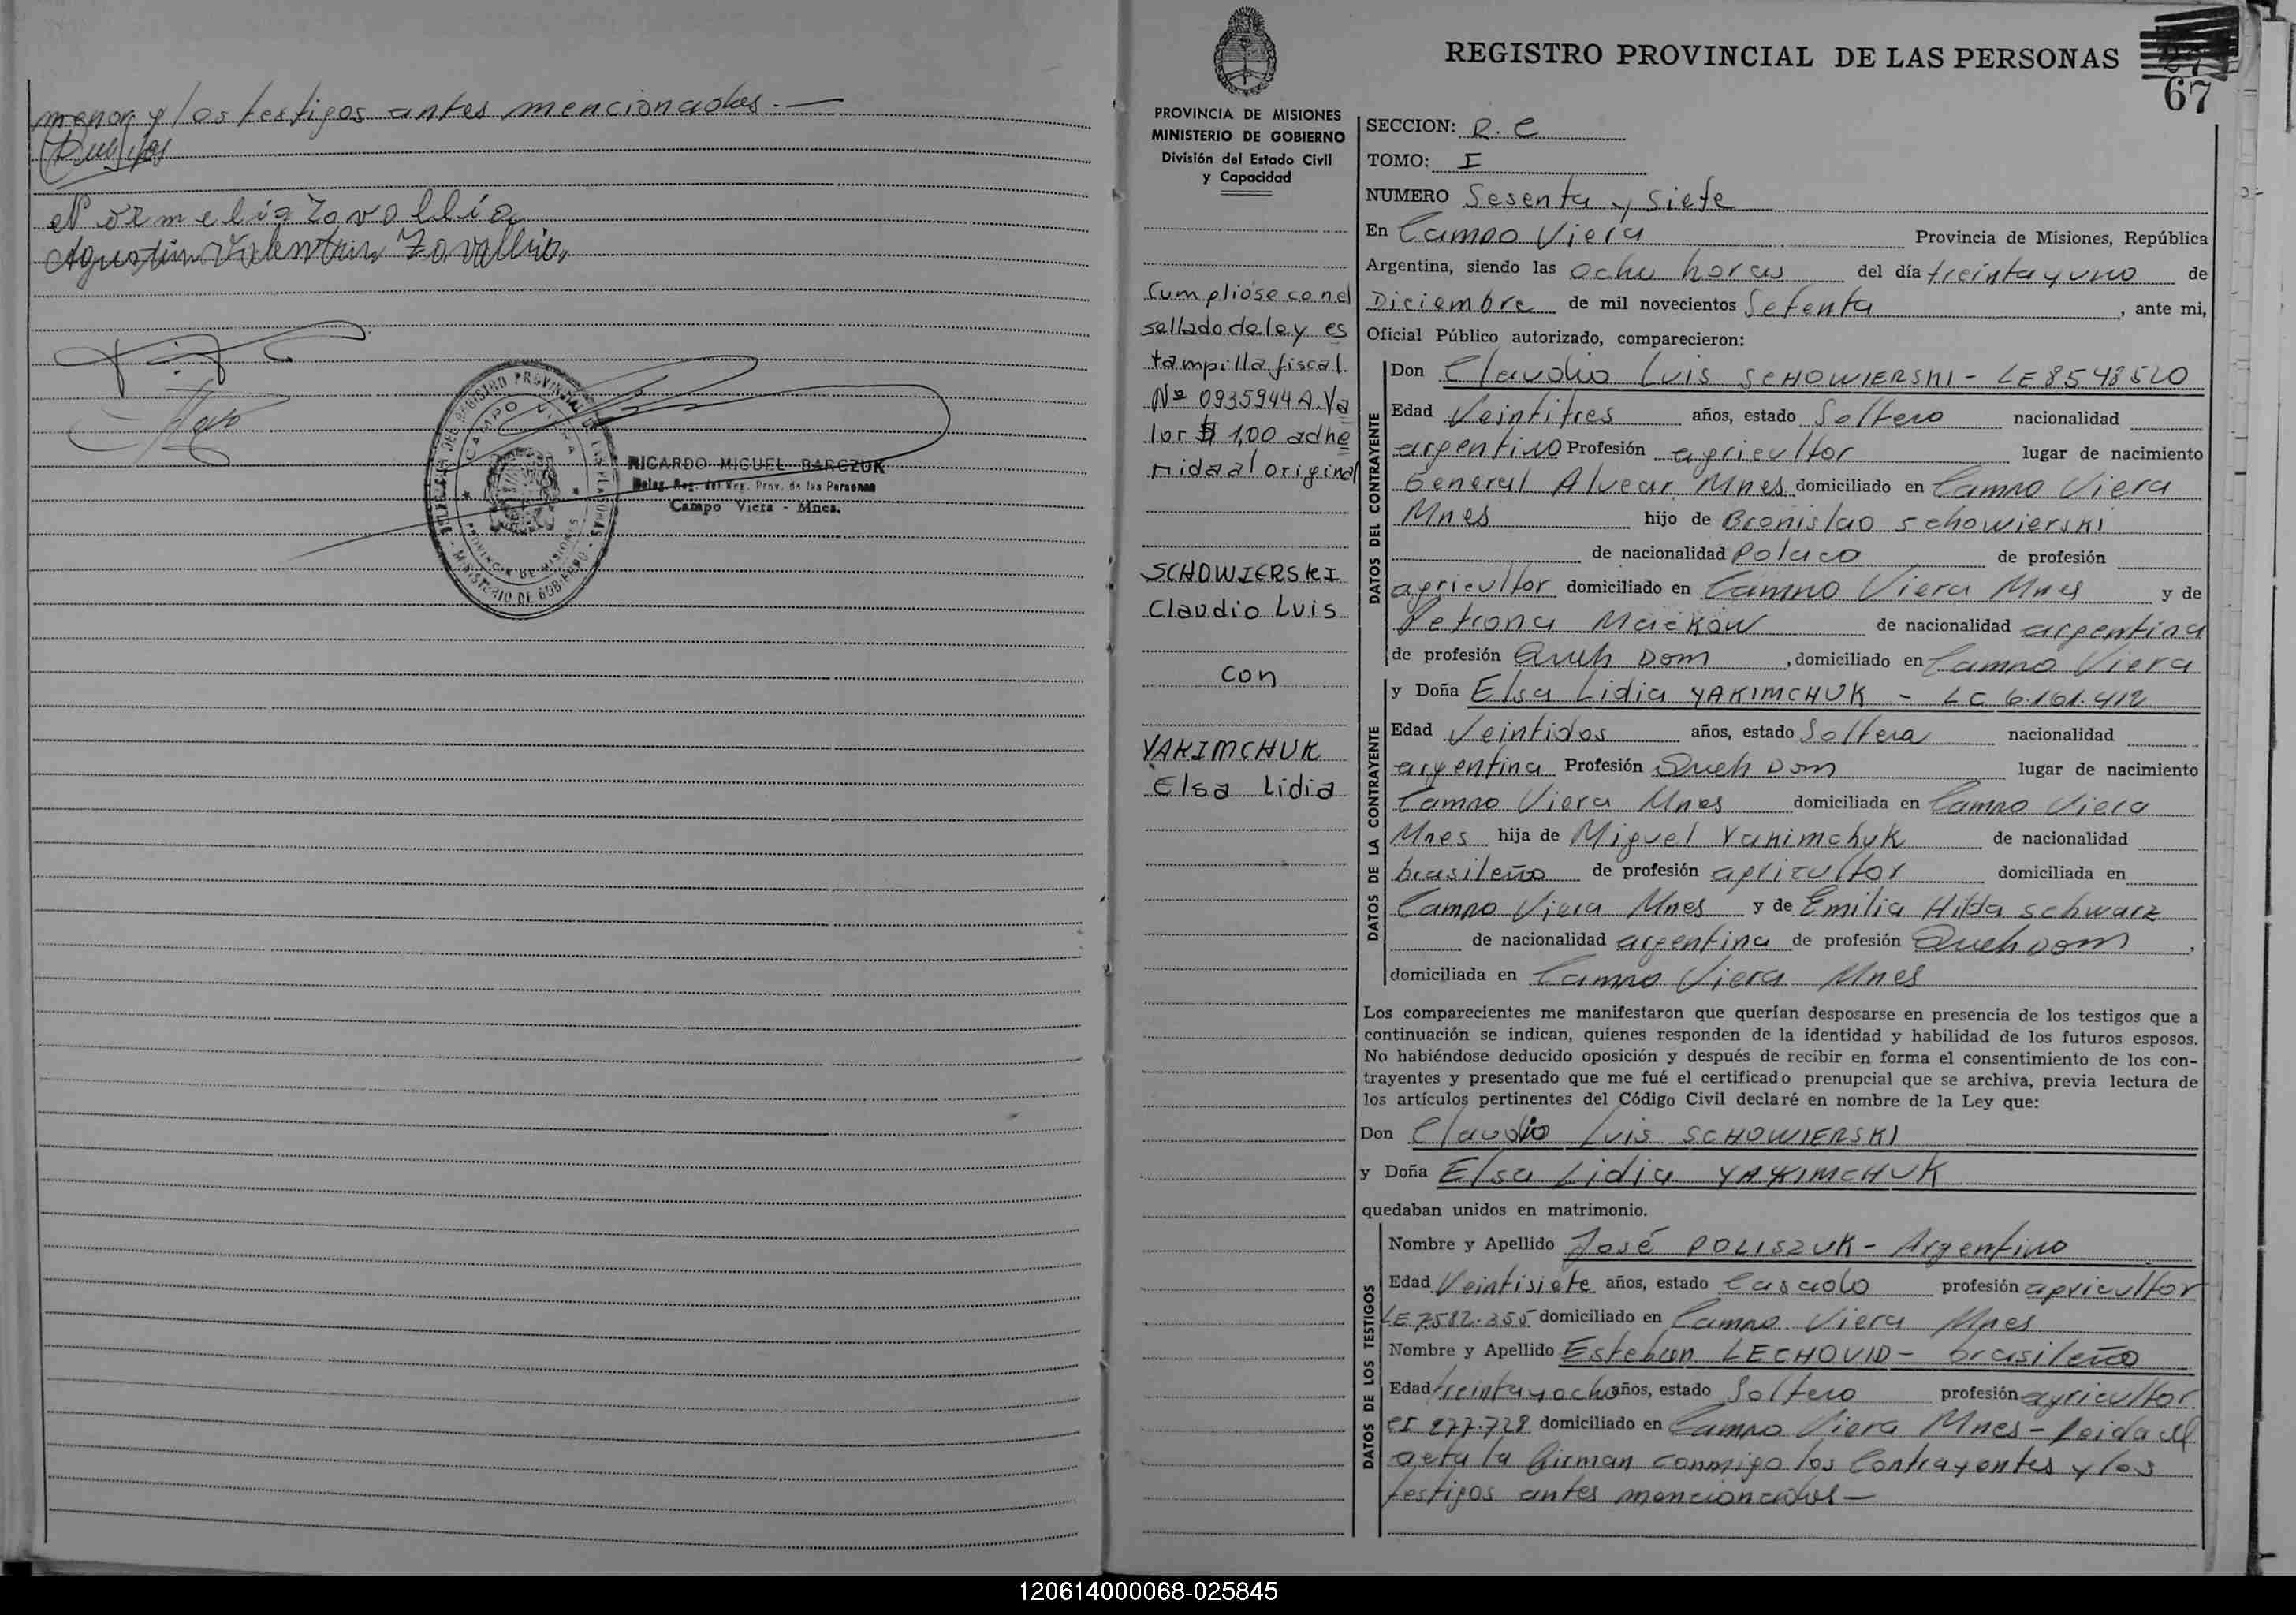 menor y los testigos antes mencionados.—
Normelia Zovallia
Agustin Valentin Zovallia
DELEGACION DEL REGISTRO PROVINCIAL DE LAS PERSONAS
CAMPO VIERA
PROVINCIA DE MISIONES
MINISTERIO DE GOBIERNO
RICARDO MIGUEL BARCZUK
Deleg. Reg. del Reg. Prov. de las Personas
Campo Viera - Mnes.
REGISTRO PROVINCIAL DE LAS PERSONAS
67
PROVINCIA DE MISIONES
MINISTERIO DE GOBIERNO
División del Estado Civil
y Capacidad
Cumplióse con el
sellado de ley es
tampilla fiscal
Nº 0935944 A. Va
lor $ 1,00 adhe
rida al original
SCHOWIERSKI
Claudio Luis
con
YAKIMCHUK
Elsa Lidia
SECCION: R. C
TOMO: I
NUMERO Sesenta y siete
En Campo Viera Provincia de Misiones, República
Argentina, siendo las ocho horas del día treinta y uno de
Diciembre de mil novecientos Setenta, ante mi,
Oficial Público autorizado, comparecieron:
DATOS DEL CONTRAYENTE
Don Claudio Luis SCHOWIERSKI - LE 8548520
Edad Veintitres años, estado Soltero nacionalidad
argentino Profesión agricultor lugar de nacimiento
General Alvear Mnes domiciliado en Campo Viera
Mnes hijo de Bronislao Schowierski
de nacionalidad Polaco de profesión
agricultor domiciliado en Campo Viera Mnes y de
Petrona Maickow de nacionalidad argentina
de profesión Queh Dom, domiciliado en Campo Viera
DATOS DE LA CONTRAYENTE
y Doña Elsa Lidia YAKIMCHUK - LC 6.161.412
Edad Veintidos años, estado Soltera nacionalidad
argentina Profesión Queh Dom lugar de nacimiento
Campo Viera Mnes domiciliada en Campo Viera
Mnes hija de Miguel Yakimchuk de nacionalidad
brasileño de profesión agricultor domiciliada en
Campo Viera Mnes y de Emilia Hilda Schwarz
de nacionalidad argentina de profesión Queh Dom,
domiciliada en Campo Viera Mnes
Los comparecientes me manifestaron que querían desposarse en presencia de los testigos que a
continuación se indican, quienes responden de la identidad y habilidad de los futuros esposos.
No habiéndose deducido oposición y después de recibir en forma el consentimiento de los con-
trayentes y presentado que me fué el certificado prenupcial que se archiva, previa lectura de
los artículos pertinentes del Código Civil declaré en nombre de la Ley que:
Don Claudio Luis SCHOWIERSKI
y Doña Elsa Lidia YAKIMCHUK
quedaban unidos en matrimonio.
DATOS DE LOS TESTIGOS
Nombre y Apellido José POLISZUK - Argentino
Edad Veintisiete años, estado Casado profesión agricultor
LE 7582.355 domiciliado en Campo Viera Mnes
Nombre y Apellido Esteban LECHOVID - brasileño
Edad treinta y ocho años, estado Soltero profesión agricultor
CI 277.728 domiciliado en Campo Viera Mnes - Leida el
acta la firman conmigo los Contrayentes y los
testigos antes mencionados—
120614000068-025845